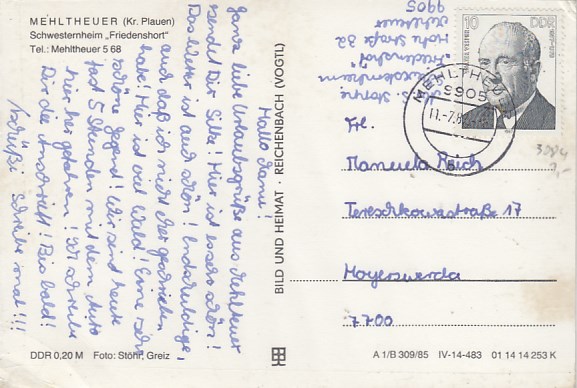 MEHLTHEUER (Kr. Plauen)
Schwesternheim „Friedenshort"
Tel.: Mehltheuer 5 68
Hallo Manu!
Ganz liebe Urlaubsgrüße aus Mehlteuer
sendet Dir Silke! Hier ist besonders schön!
Das Wetter ist auch schön! Entschuldige,
auch daß ich nicht eher geschrieben
habe! Hier ist viel Wald! Eine sehr
schöne Gegend! Wir sind heute
fast 5 Stunden mit dem Auto
hier her gefahren! Ich schreibe
Dir die Anschrift! Bis bald!
Tschüßi Schreibe mal!!!
BILD UND HEIMAT · REICHENBACH (VOGTL)
S.
Schwesternheim
"Friedenshort"
Hohe Straße 32
Mehltheuer
9905
10 DDR
MEHLTHEUER
9905
11.-7.8
Frl.
Manuela Reich
Tereschkowastraße 17
Hoyerswerda
7700
DDR 0,20 M Foto: Stöhr, Greiz
A 1/B 309/85 IV-14-483 01 14 14 253 K